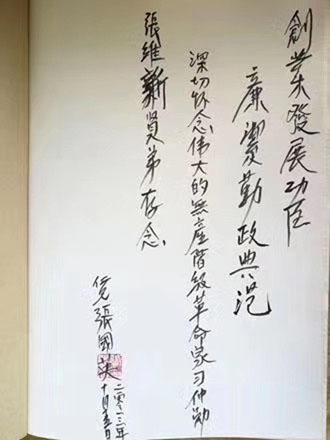 創業發展功臣
廉潔勤政典范
深切怀念伟大的無產階級革命家习仲勋
張維新賢弟存念
張國英
二〇一三年
十月十五日